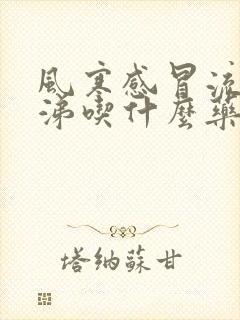 風寒感冒流
涕喫什麼藥
塔納蘇甘